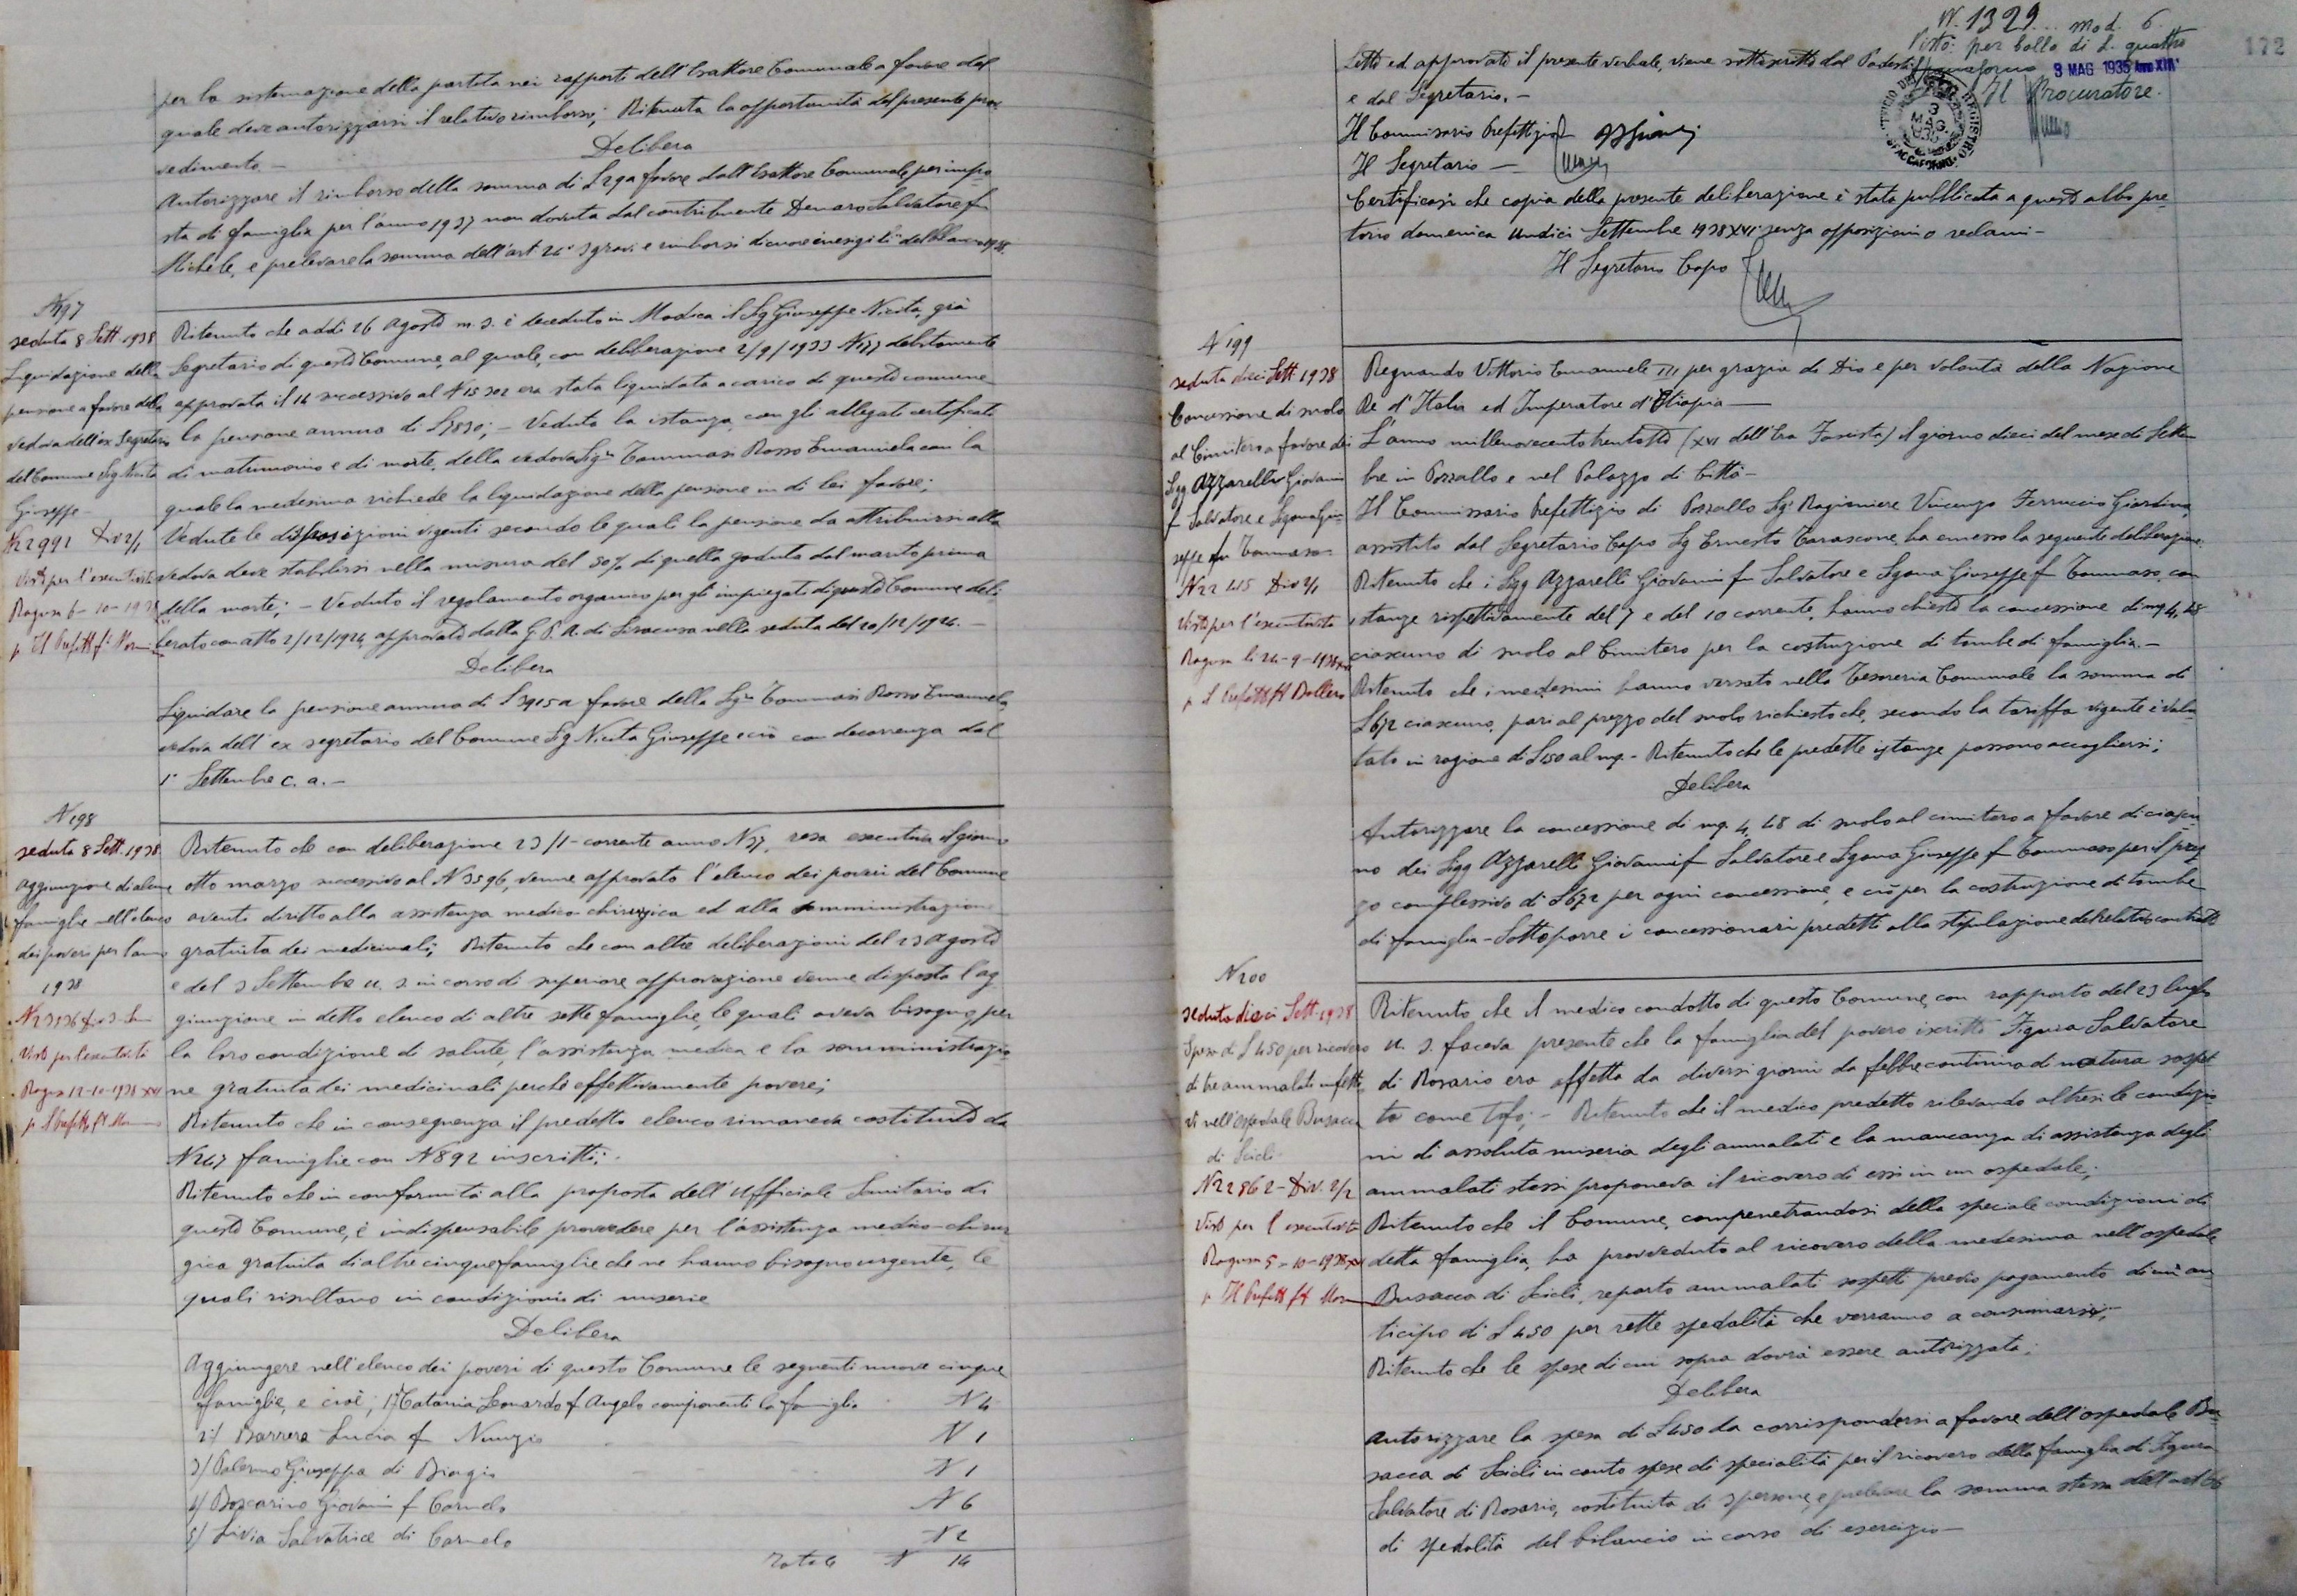 per la sistemazione della partita nei rapporti dell'Esattore Comunale a favore del
quale deve autorizzarsi il relativo rimborso; Ritenuta la opportunità del presente prov
vedimento -
Delibera
Autorizzare il rimborso della somma di L 29 a favore dell'Esattore Comunale per impo
sta di famiglia per l'anno 1937 non dovuta dal contribuente Denaro Salvatore fu
Michele, e prelevare la somma dell'art 26 sgravi e rimborsi di quote inesigibili del bilancio 1938.
N 197
seduta 8 Sett. 1938
Liquidazione della
pensione a favore della
vedova dell'ex Segretario
del Comune Sig Nicita
Giuseppe -
N 22991 Div 2/1
Visto per l'esecutività
Ragusa 6-10-1938
p. Il Prefetto f°
Ritenuto che addì 26 Agosto m. s. è deceduto in Modica il Sig Giuseppe Nicita, già
Segretario di questo Comune, al quale, con deliberazione 2/9/1933 N 177 debitamente
approvata il 14 successivo al N 15302 era stata liquidata a carico di questo comune
la pensione annua di L 7830; - Veduta la istanza, con gli allegati certificati
di matrimonio e di morte, della vedova Sig.ra Tommasi Rosso Emanuela con la
quale la medesima richiede la liquidazione della pensione in di lei favore;
Vedute le disposizioni vigenti secondo le quali la pensione da attribuirsi alla
vedova deve stabilirsi nella misura del 50% di quella goduta dal marito prima
della morte; - Veduto il regolamento organico per gli impiegati di questo Comune deli
berato con atto 2/12/1924, approvato dalla G. P. A. di Siracusa nella seduta del 20/12/1924. -
Delibera
Liquidare la pensione annua di L 3915 a favore della Sig.ra Tommasi Rosso Emanuela,
vedova dell'ex segretario del Comune Sig Nicita Giuseppe e ciò con decorrenza dal
1° Settembre c. a. -
N 198
seduta 8 Sett. 1938
Aggiunzione di alcune
famiglie nell'elenco
dei poveri per l'anno
1938
N 23136 Div 3 -
Visto per l'esecutività
Ragusa 12-10-1938 XVI
p. Il Prefetto ft
Ritenuto che con deliberazione 23/1 - corrente anno N 37, resa esecutiva il giorno
otto marzo successivo al N 3596, venne approvato l'elenco dei poveri del Comune
aventi diritto alla assistenza medico-chirurgica ed alla somministrazione
gratuita dei medicinali; Ritenuto che con altre deliberazioni del 23 Agosto
e del 3 Settembre u. s. in corso di superiore approvazione venne disposta l'ag
giunzione in detto elenco di altre sette famiglie, le quali aveva bisogno, per
la loro condizione di salute, l'assistenza medica e la somministrazio
ne gratuita dei medicinali perché effettivamente povere;
Ritenuto che in conseguenza il predetto elenco rimaneva costituito da
N 247 famiglie con N 892 inscritti;
Ritenuto che in conformità alla proposta dell'Ufficiale Sanitario di
questo Comune, è indispensabile provvedere per l'assistenza medico-chirur
gica gratuita di altre cinque famiglie che ne hanno bisogno urgente, le
quali risultano in condizioni di miserie
Delibera
Aggiungere nell'elenco dei poveri di questo Comune le seguenti nuove cinque
famiglie, e cioè; 1°/ Catania Leonardo f Angelo componenti la famiglia N 4
2/ Barrera Lucia fu Nunzio N 1
3/ Palermo Giuseppa di Biagio N 1
4/ Boscarino Giovanni f Carmelo N 6
5/ Livia Salvatrice di Carmelo N 2
Totale N 14
N. 1329. Mod. 6
Visto: per bollo di L. quattro
Spaccaforno 3 MAG 1935 Anno XIII°
Il Procuratore.
172
UFFICIO DEL REGISTRO
SPACCAFORNO
Letto ed approvato il presente verbale, viene sottoscritto dal Podestà
e dal Segretario. -
Il Commissario Prefettizio
Il Segretario -
Certificasi che copia della presente deliberazione è stata pubblicata a quest'albo pre-
torio domenica undici Settembre 1938 XVI senza opposizioni o reclami -
Il Segretario Capo
N 199
seduta dieci Sett. 1938
Concessione di suolo
al Cimitero a favore dei
Sigg Azzarelli Giovanni
f Salvatore e Sgana Giu-
seppe fu Tommaso -
N 22415 Div 2/1
Visto per l'esecutività
Ragusa li 24-9-1938 XVI
p. Il Prefetto ft
Regnando Vittorio Emanuele III per grazia di Dio e per volontà della Nazione
Re d'Italia ed Imperatore d'Etiopia -
L'anno millenovecentotrentotto (XVI dell'Era Fascista) il giorno dieci del mese di Settem
bre in Pozzallo e nel Palazzo di Città -
Il Commissario Prefettizio di Pozzallo Sig. Ragioniere Vincenzo Ferruccio Giardina,
assistito dal Segretario Capo Sig Ernesto Tarascone, ha emesso la seguente deliberazione:
Ritenuto che i Sigg Azzarelli Giovanni fu Salvatore e Sgana Giuseppe f Tommaso, con
istanze rispettivamente del 7 e del 10 corrente, hanno chiesto la concessione di mq 4,48
ciascuno di suolo al Cimitero per la costruzione di tombe di famiglia. -
Ritenuto che i medesimi hanno versato nella Tesoreria Comunale la somma di
L 672 ciascuno, pari al prezzo del suolo richiesto che, secondo la tariffa vigente è valu-
tato in ragione di L 150 al mq. - Ritenuto che le predette istanze possono accogliersi;
Delibera
Autorizzare la concessione di mq. 4,48 di suolo al cimitero a favore di ciascu
no dei Sigg Azzarelli Giovanni f Salvatore e Sgana Giuseppe f Tommaso per il prez
zo complessivo di L 672 per ogni concessione, e ciò per la costruzione di tombe
di famiglia - Sottoporre i concessionari predetti alla stipulazione del relativo contratto
N 200
seduta dieci Sett. 1938
Spesa di L 450 per ricovero
di tre ammalati infetti-
vi nell'ospedale Busacca
di Scicli -
N 22862 - Div. 2/2
Visto per l'esecutività
Ragusa 5-10-1938 XVI
p. Il Prefetto ft
Ritenuto che il medico condotto di questo Comune, con rapporto del 23 luglio
u. s. faceva presente che la famiglia del povero iscritto Figura Salvatore
di Rosario era affetta da diversi giorni da febbre continua di natura sospet
ta come tifo; - Ritenuto che il medico predetto rilevando altresì le condizio
ni di assoluta miseria degli ammalati e la mancanza di assistenza degli
ammalati stessi proponeva il ricovero di essi in un ospedale;
Ritenuto che il Comune, compenetrandosi della speciale condizioni di
detta famiglia, ha provveduto al ricovero della medesima nell'ospedale
Busacca di Scicli, reparto ammalati sospetti previo pagamento di un an
ticipo di L 450 per rette spedalità che verranno a consumarsi;
Ritenuto che le spese di cui sopra dovrà essere autorizzata;
Delibera
Autorizzare la spesa di L 450 da corrispondersi a favore dell'ospedale Bu
sacca di Scicli in conto spese di specialità per il ricovero della famiglia di Figura
Salvatore di Rosario, costituita di 3 persone, e prelevare la somma stessa dell'art 56
di spedalità del bilancio in corso di esercizio -